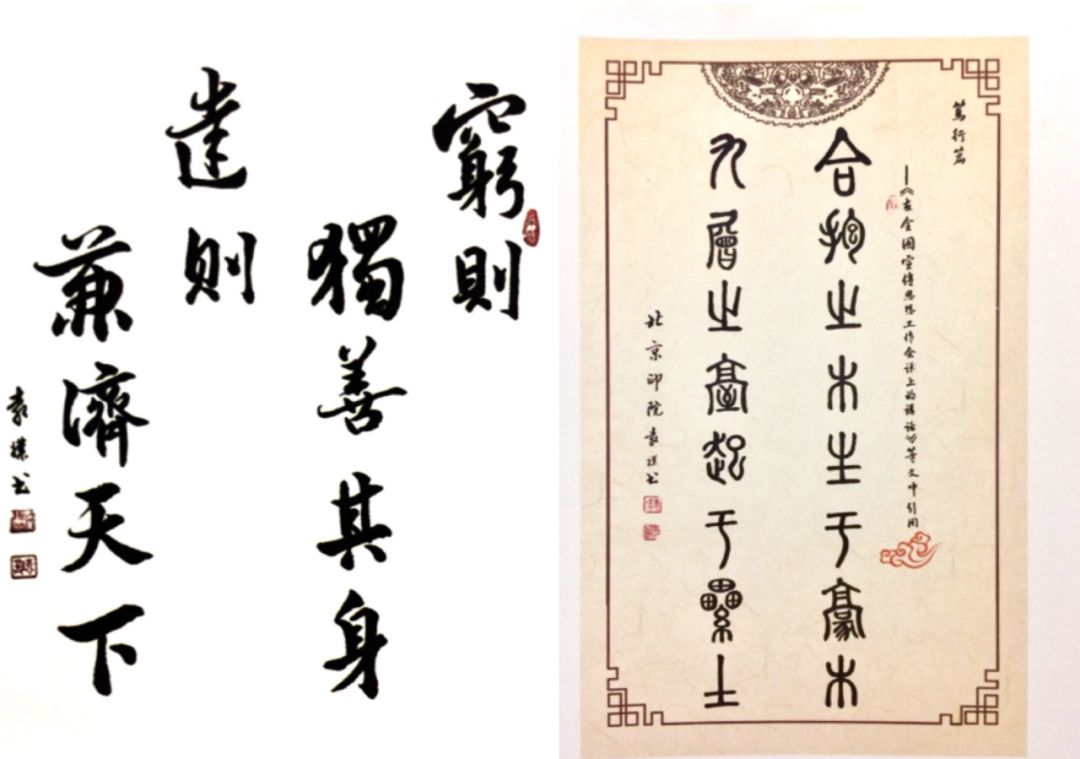 窮則
獨善其身
達則
兼濟天下
袁璞书
篤行篇
——《在全国宣传思想工作会议上的讲话》等文中引用
合抱之木生于豪末
九層之臺起于纍土
北京印院袁璞书